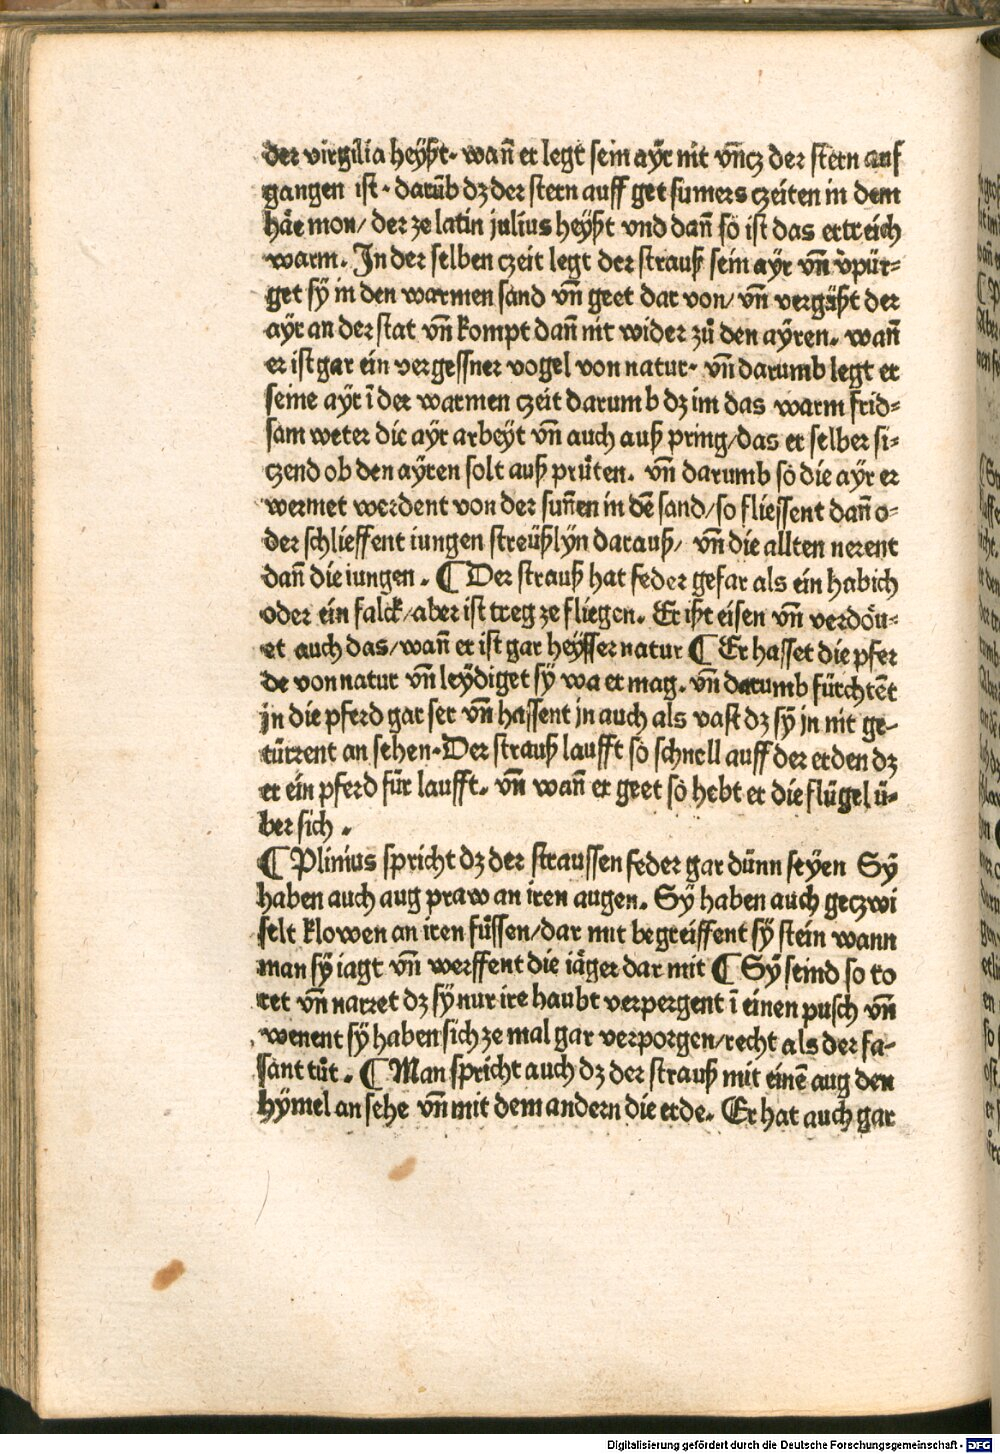 der virgilia heyßt. wañ er legt sein aÿr nit vñcz der stern auf
gangen ist. darũb dz der stern auff get sumers czeiten in dem
häe mon/ der ze latin julius heÿßt vnd dañ so ist das ertreich
warm. In der selben czeit legt der strauß sein aÿr vñ vpür⸗
get sÿ in den warmen sand vñ geet dar von/ vñ vergäßt der
aÿr an der stat vñ kompt dañ nit wider zů den aÿren. wañ
er ist gar ein vergessner vogel von natur. vñ darumb legt er
seine aÿr ĩ der warmen czeit darumb dz im das warm frid⸗
sam weter die aÿr arbeÿt vñ auch auß pring/das er selber si⸗
czend ob den aÿren solt auß prüten. vñ darumb so die aÿr er
wermet werdent von der suñen in dẽ sand/so fliessent dañ o⸗
der schlieffent iungen streüßlÿn darauß/ vñ die allten nerent
dañ die iungen. ¶ Der strauß hat feder gefar als ein habich
oder ein falck/aber ist treg ze fliegen. Er ißt eisen vñ verdöu⸗
et auch das/wañ er ist gar heÿsser natur ¶ Er hasset die pfer
de von natur vñ leÿdiget sÿ wa er mag. vñ darumb fürchtẽt
jn die pferd gar ser vñ hassent jn auch als vast dz sÿ jn nit ge⸗
türrent an sehen. Der strauß laufft so schnell auff der erden dz
er ein pferd für laufft. vñ wañ er geet so hebt er die flügel ü⸗
ber sich.
¶ Plinius spricht dz der straussen feder gar dünn seyen Sÿ
haben auch aug praw an iren augen. Sÿ haben auch geczwi
selt klowen an iren füssen/dar mit begreiffent sÿ stein wann
man sÿ iagt vñ werffent die iäger dar mit ¶ Sÿ seind so to
ret vñ narret dz sÿ nur ire haubt verpergent ĩ einen pusch vñ
wenent sÿ haben sich ze mal gar verporgen/recht als der fa⸗
sant tůt. ¶ Man spricht auch dz der strauß mit einẽ aug den
hÿmel an sehe vñ mit dem andern die erde. Er hat auch gar
Digitalisierung gefördert durch die Deutsche Forschungsgemeinschaft - DFG